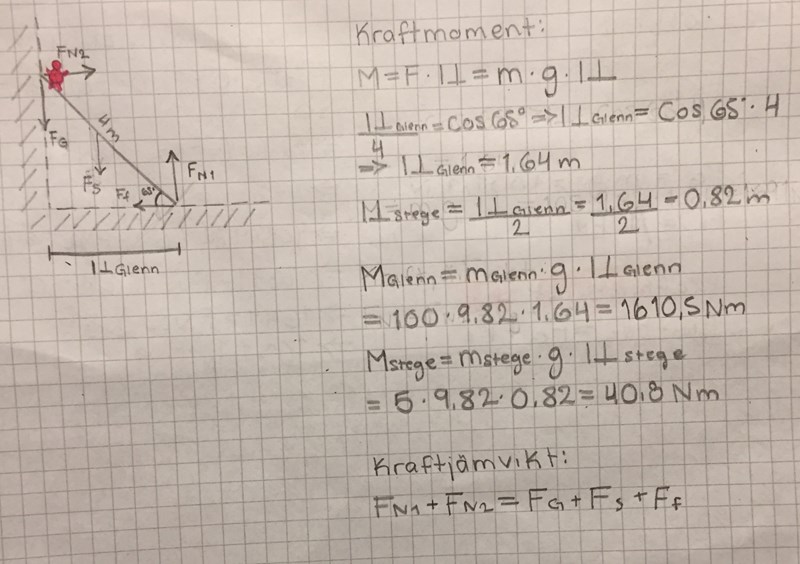 FN2
4 m
FG
FS
Ff
65°
FN1
l⊥Glenn
Kraftmoment:
M=F·l⊥=m·g·l⊥
l⊥Glenn/4=cos 65° => l⊥Glenn= Cos 65°·4
=> l⊥Glenn=1,64 m
l⊥stege = l⊥Glenn/2 = 1,64/2 = 0,82 m
MGlenn=mGlenn·g·l⊥Glenn
=100·9,82·1,64=1610,5 Nm
Mstege=mstege·g·l⊥stege
=5·9,82·0,82=40,8 Nm
Kraftjämvikt:
FN1+FN2=FG+FS+Ff